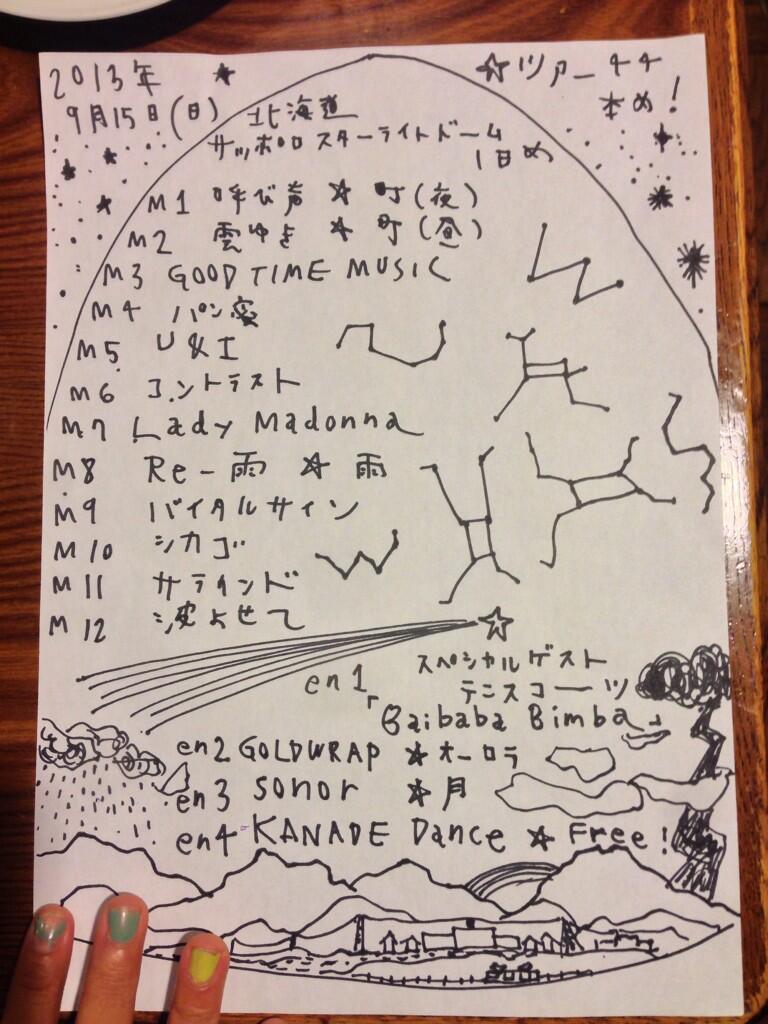 2013年
9月15日(日) 北海道
サッポロスターライトドーム
1日め
☆ツアー44
本め!
M1 呼び声 ★ 町(夜)
M2 雲ゆき ★ 町(昼)
M3 GOOD TIME MUSIC
M4 パン窯
M5 U&I
M6 コントラスト
M7 Lady Madonna
M8 Re-雨 ★ 雨
M9 バイタルサイン
M10 シカゴ
M11 サラウンド
M12 波よせて
en1 スペシャルゲスト
テニスコーツ
「Baibaba Bimba」
en2 GOLDWRAP ★オーロラ
en3 sonor ★月
en4 KANADE Dance ★ Free!